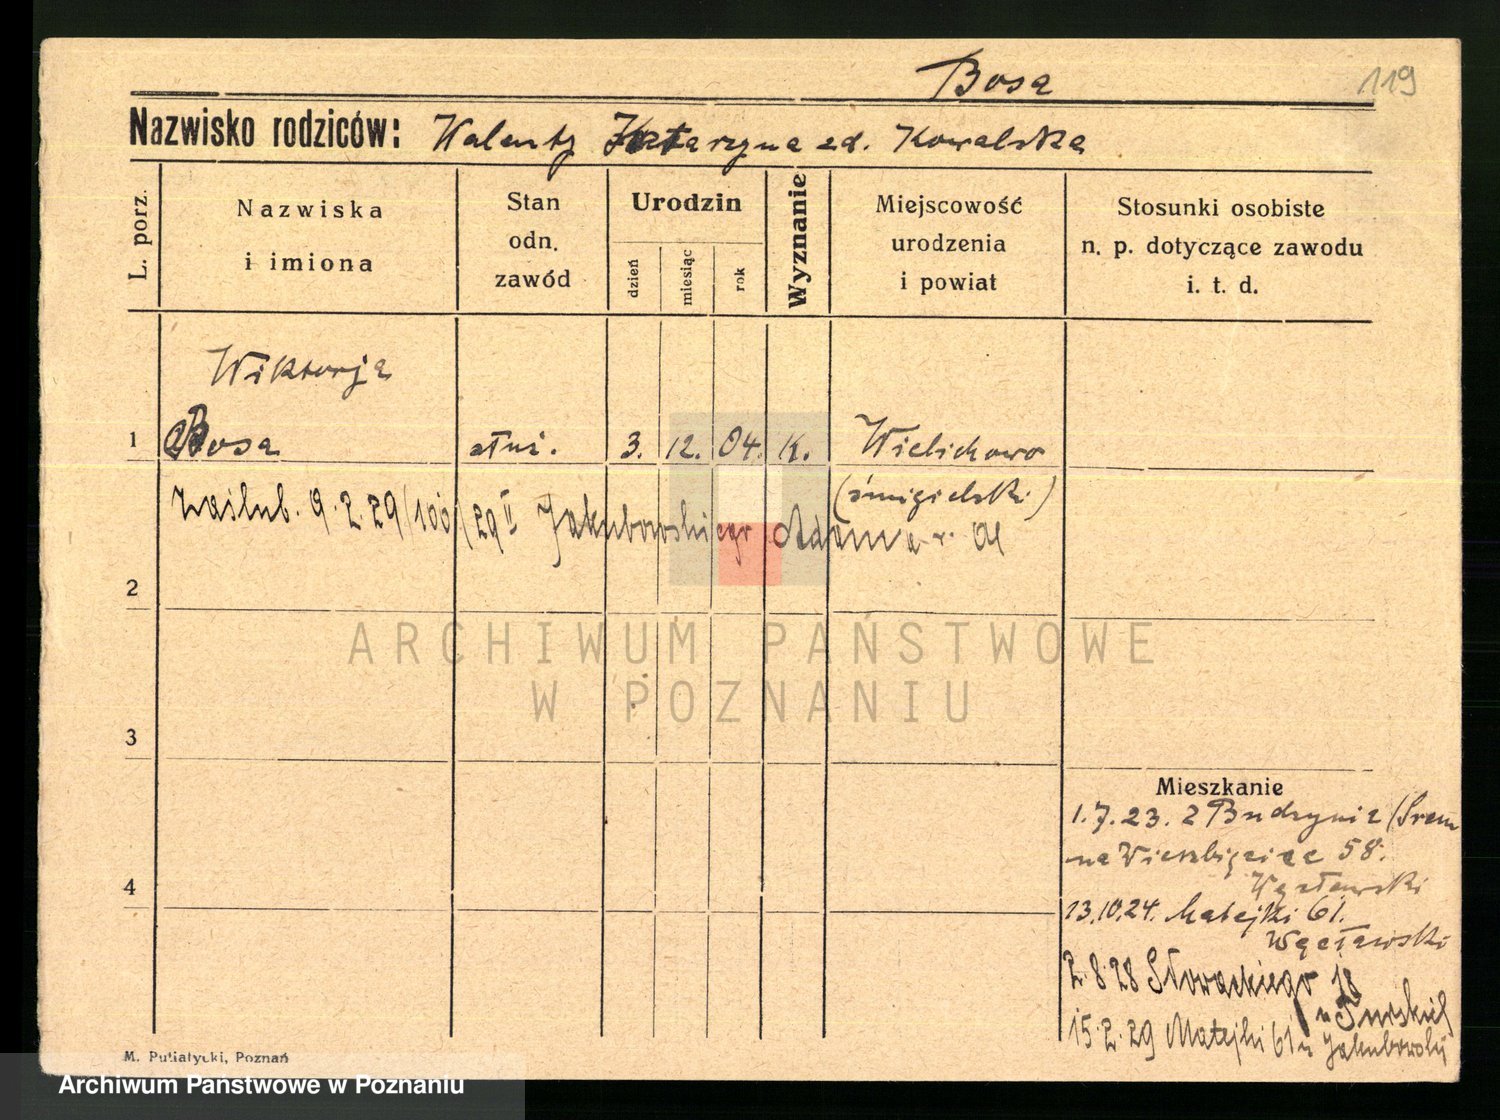 Bosa 119
Nazwisko rodziców: Walenty Katarzyna zd. Kowalska
L. porz.
Nazwiska
i imiona
Stan
odn.
zawód
Urodzin
dzień
miesiąc
rok
Wyznanie
Miejscowość
urodzenia
i powiat
Stosunki osobiste
n. p. dotyczące zawodu
i. t. d.
Wiktorja
1 Bosa służ. 3. 12. 04. K. Wielichowo
(śmigielski)
zaślub. 9.2.29 (100/29 II Jakubowskiego Adama r. 01
2
ARCHIWUM PAŃSTWOWE
W POZNANIU
3
Mieszkanie
1.7.23. z Budzynia (Śrem
na Wierzbięcice 58.
4
13.10.24. Matejki 61.
2.8.28 Słowackiego 18
u Turskiej
15.2.29 Matejki 61 u Jakubowskij
M. Putiatycki, Poznań
Archiwum Państwowe w Poznaniu